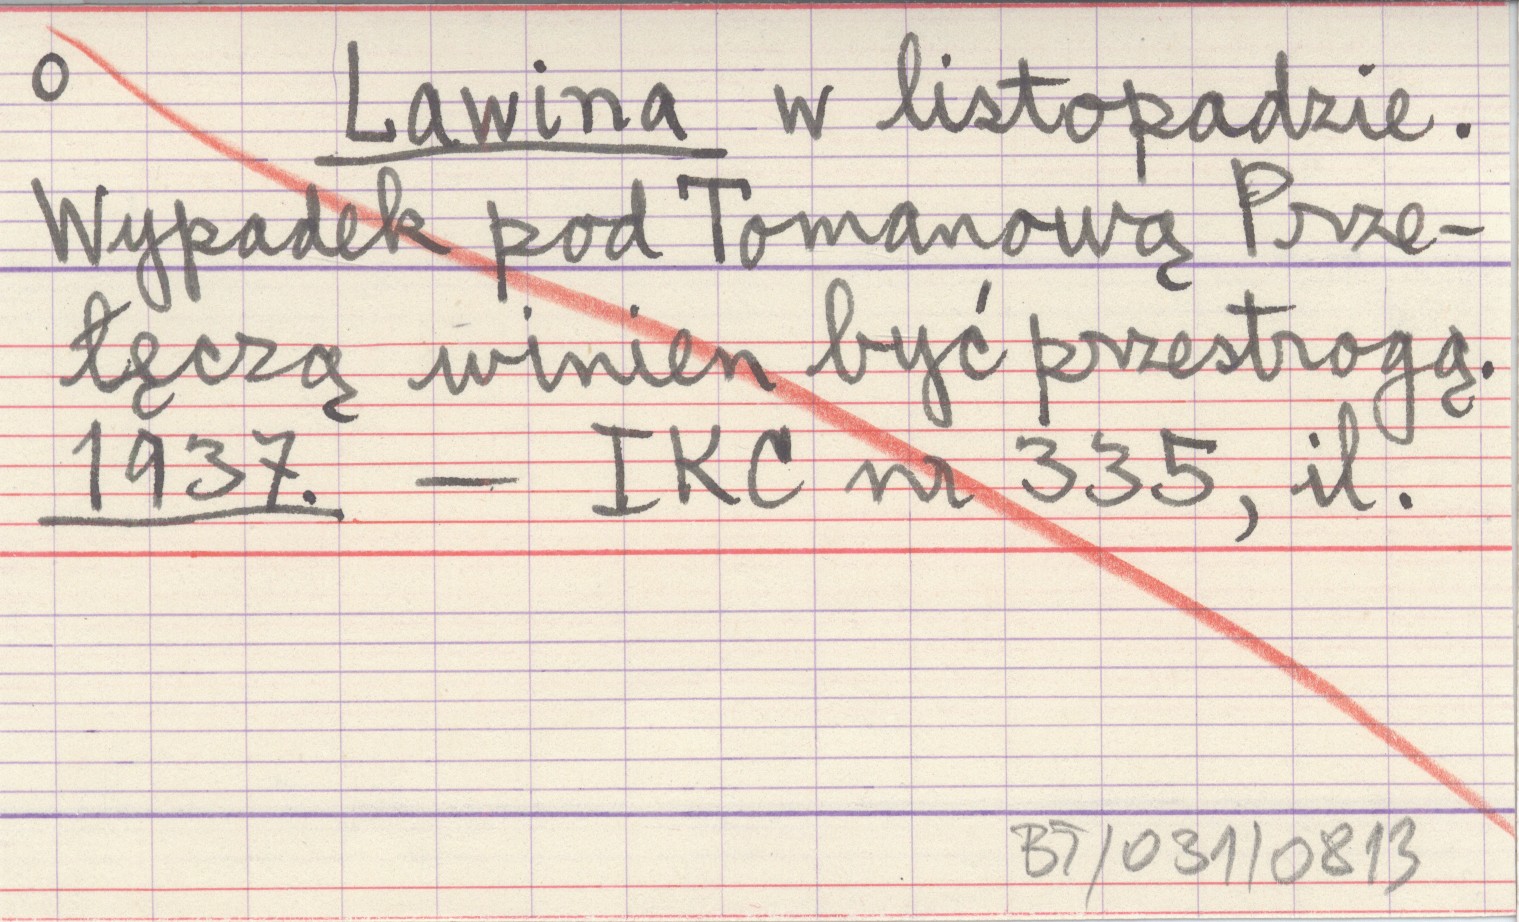 o Lawina w listopadzie.
Wypadek pod Tomanową Prze-
łęczą winien być przestrogą.
1937. — IKC nr 335, il.
BT/031/0813